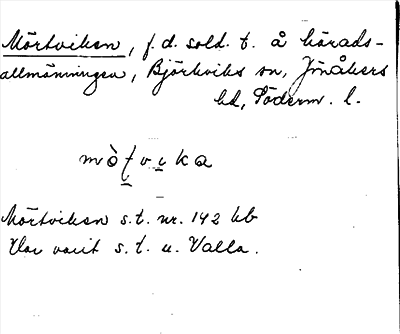 Mörtviken, f.d. sold. t. å härads-
allmänningen, Björkviks sn, Jönåkers
hd, Söderm. l.
Mörtviken s.t. nr. 142 kb
Har varit s.t. u. Valla.